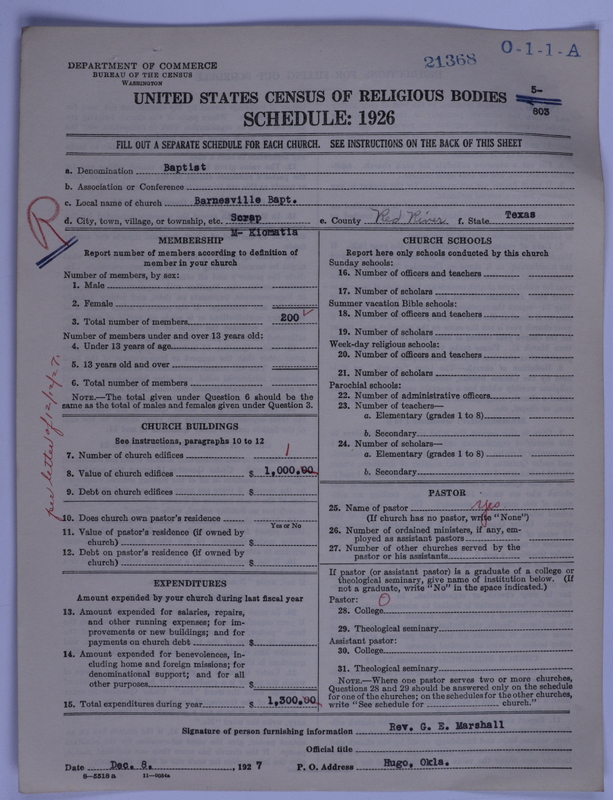 21368
O-1-1-A
DEPARTMENT OF COMMERCE
BUREAU OF THE CENSUS
WASHINGTON
UNITED STATES CENSUS OF RELIGIOUS BODIES
SCHEDULE: 1926
5-
803
FILL OUT A SEPARATE SCHEDULE FOR EACH CHURCH. SEE INSTRUCTIONS ON THE BACK OF THIS SHEET
a. Denomination Baptist
b. Association or Conference
c. Local name of church Barnesville Bapt.
d. City, town, village, or township, etc. Scrap e. County Red River f. State Texas
M- Kiomatia
R
per letter of 12/12/27.
MEMBERSHIP
Report number of members according to definition of
member in your church
Number of members, by sex:
1. Male
2. Female
3. Total number of members 200
Number of members under and over 13 years old:
4. Under 13 years of age
5. 13 years old and over
6. Total number of members
NOTE.—The total given under Question 6 should be the
same as the total of males and females given under Question 3.
CHURCH BUILDINGS
See instructions, paragraphs 10 to 12
7. Number of church edifices 1
8. Value of church edifices $ 1,000.00
9. Debt on church edifices $
10. Does church own pastor's residence
Yes or No
11. Value of pastor's residence (if owned by
church) $
12. Debt on pastor's residence (if owned by
church) $
EXPENDITURES
Amount expended by your church during last fiscal year
13. Amount expended for salaries, repairs,
and other running expenses; for im-
provements or new buildings; and for
payments on church debt $
14. Amount expended for benevolences, in-
cluding home and foreign missions; for
denominational support; and for all
other purposes $
15. Total expenditures during year $ 1,300.00
CHURCH SCHOOLS
Report here only schools conducted by this church
Sunday schools:
16. Number of officers and teachers
17. Number of scholars
Summer vacation Bible schools:
18. Number of officers and teachers
19. Number of scholars
Week-day religious schools:
20. Number of officers and teachers
21. Number of scholars
Parochial schools:
22. Number of administrative officers
23. Number of teachers—
a. Elementary (grades 1 to 8)
b. Secondary
24. Number of scholars—
a. Elementary (grades 1 to 8)
b. Secondary
PASTOR
25. Name of pastor yes
(If church has no pastor, write "None")
26. Number of ordained ministers, if any, em-
ployed as assistant pastors
27. Number of other churches served by the
pastor or his assistants
If pastor (or assistant pastor) is a graduate of a college or
theological seminary, give name of institution below. (If
not a graduate, write "No" in the space indicated.)
Pastor: 0
28. College
29. Theological seminary
Assistant pastor:
30. College
31. Theological seminary
NOTE.—Where one pastor serves two or more churches,
Questions 28 and 29 should be answered only on the schedule
for one of the churches; on the schedules for the other churches,
write "See schedule for church."
Signature of person furnishing information Rev. G. E. Marshall
Official title
Date Dec. 8. , 1927 P. O. Address Hugo, Okla.
8—5518a